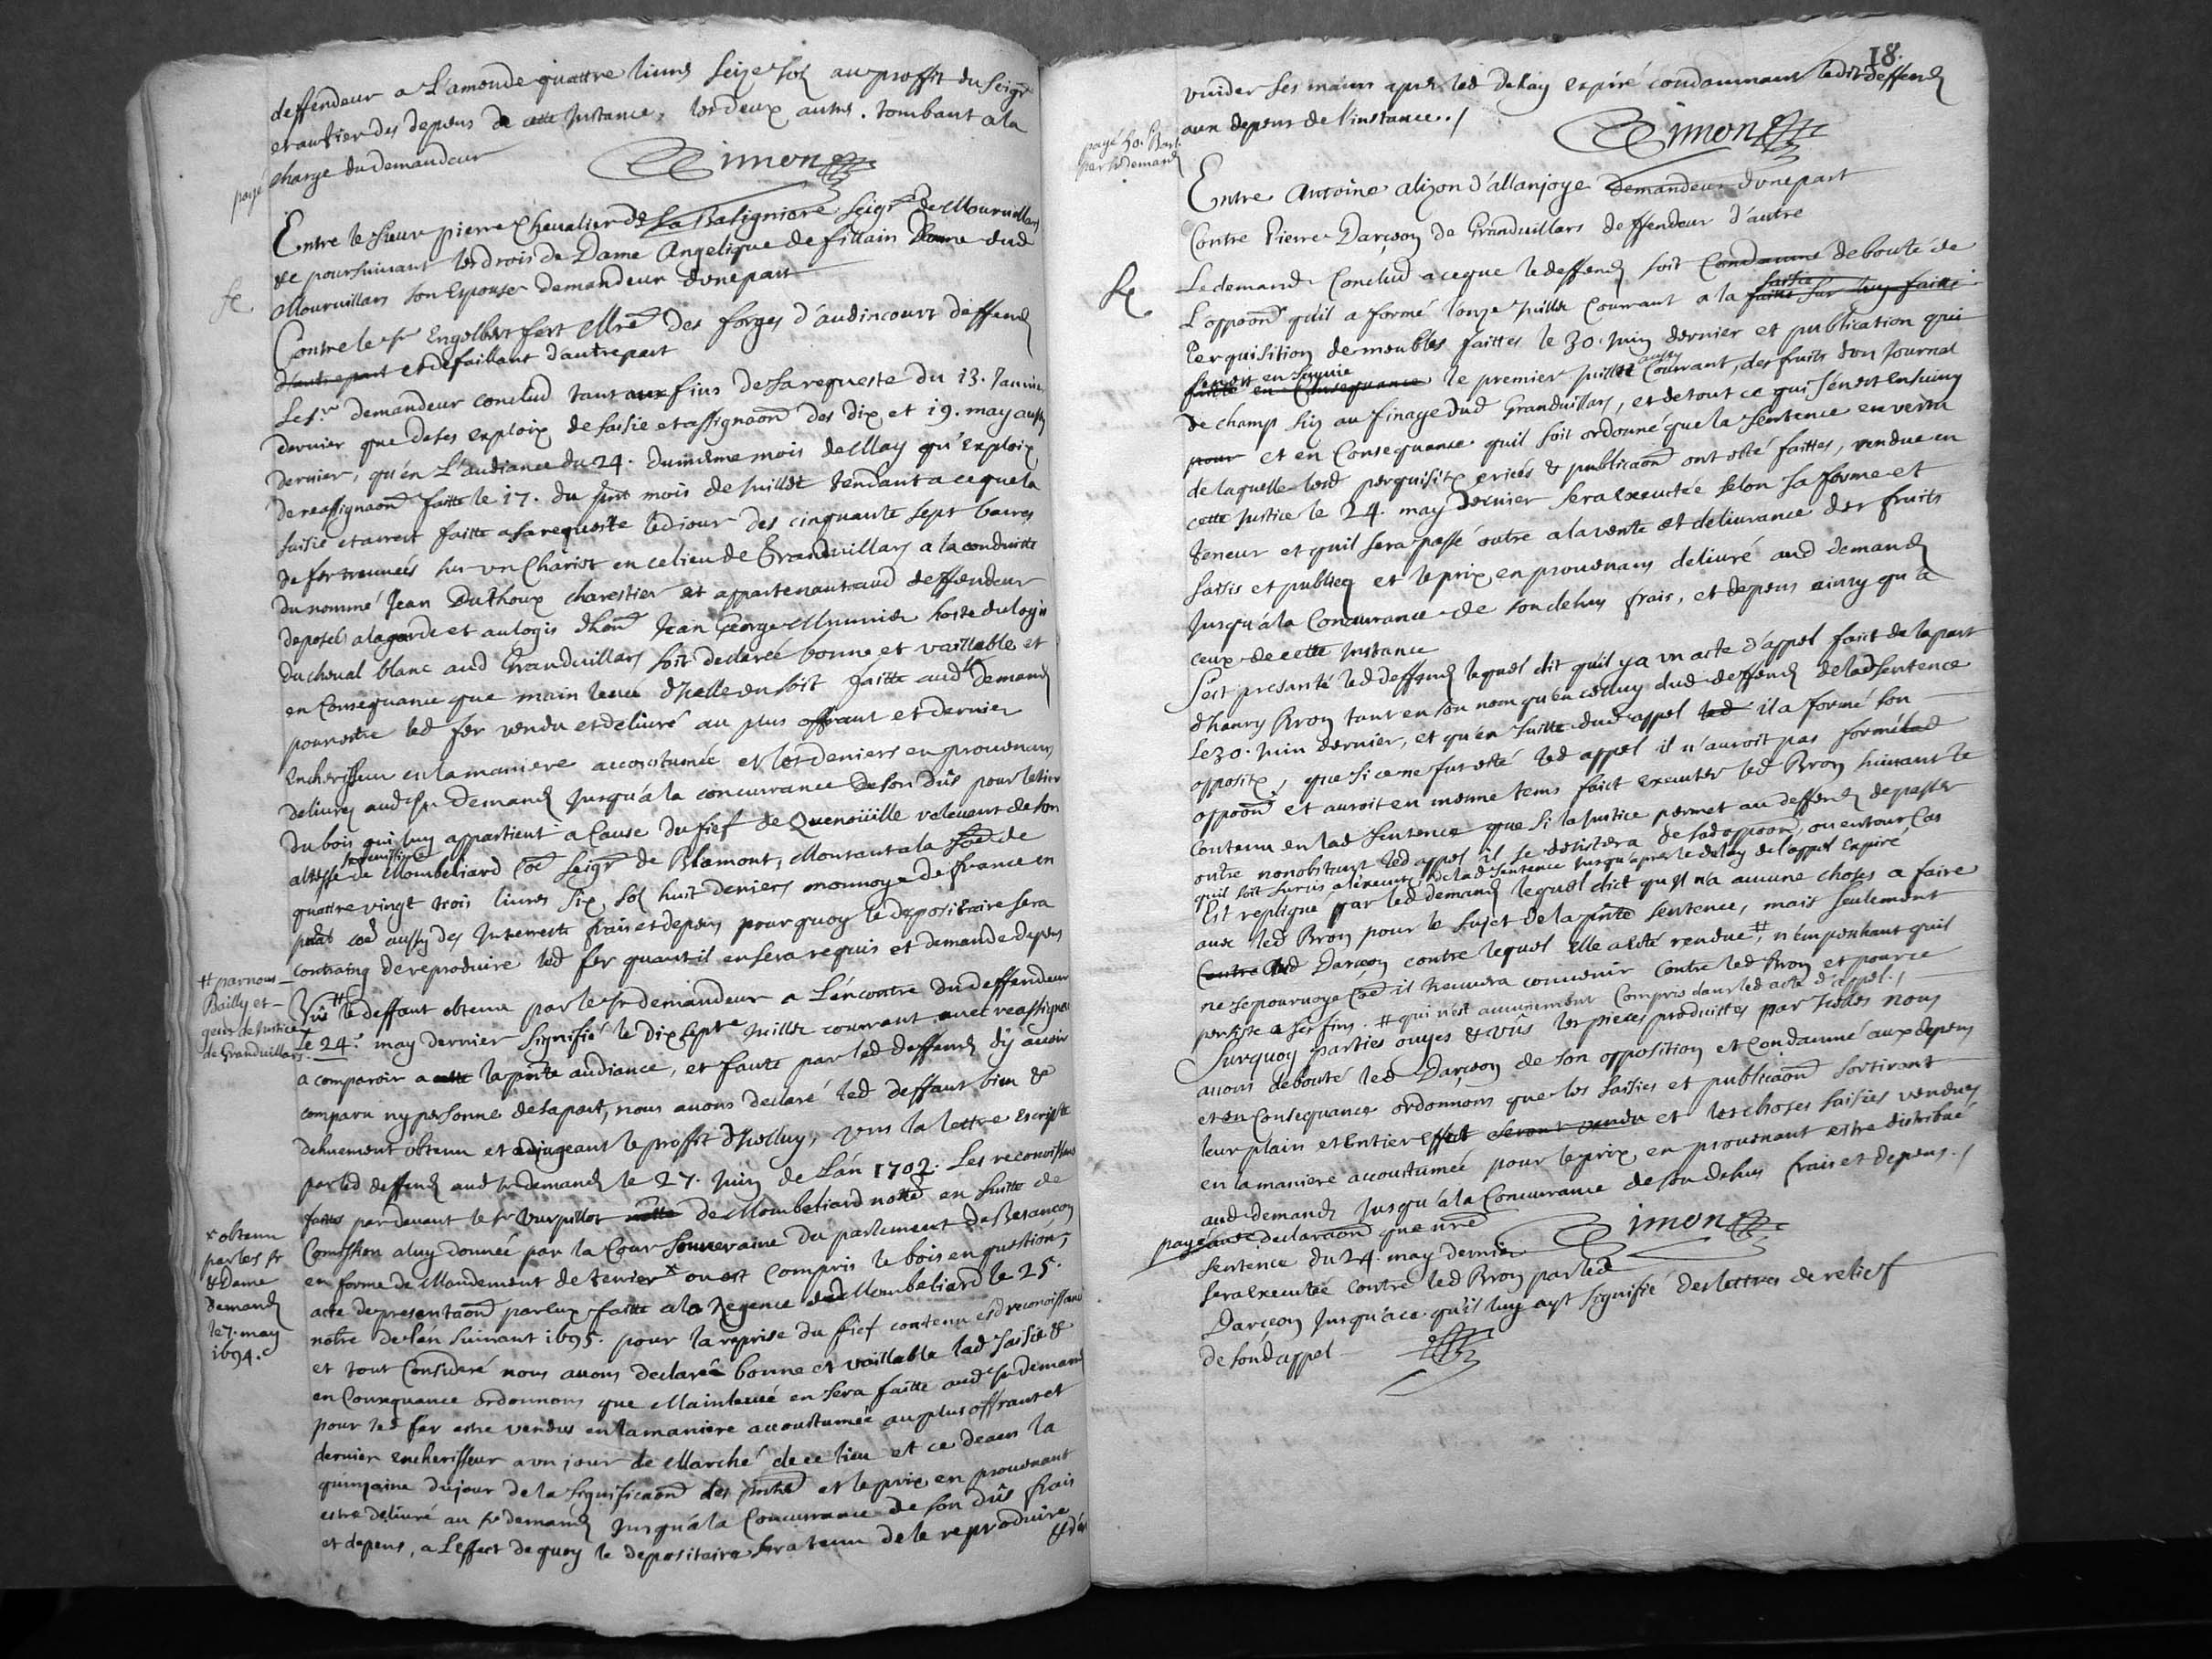 deffendeur a L'amende quattre liures seize sols au proffit du seigr
et au tier des depens de cette Instance, les deux autres. tombant a la
charge du demandeur
Simon
payé
Entre le sieur pierre Chevalier de la Basigniere seigr de Mouruillars
et poursuiuant les drois de Dame Angelique de fillain Dame dud
Mouruillars son Espouse demandeur d'une part
Contre le sr Engelbert fert Mre des forges d'audincourt deffend
d'autre part et defaillant d'autre part
Le sr demandeur conclud tant aux fins de sa requeste du 13. Januier
dernier que de ses exploix de saisie et assignaon des dix et 19. may aussy
dernier, qu'en L'audiance du 24. du mesme mois de May qu'Exploix
de reassignaon faitte le 17. du pnt mois de Juillet tendant a ce que la
saisie et arrest faitte a sa requeste led jour des cinquante sept barres
de fer trouuées sur un Chariot en ce lieu de Granduillars a la conduitte
du nommé Jean Duthoux charestier et appartenant aud deffendeur
deposés a la garde et au logis d'hon Jean George Meunier hoste du logis
du cheual blanc aud Granduillars soit declarée bonne et vaillable et
en Consequance que main leuée d'Icelle en soit faitte aud sr demand
pour estre led fer vendu et deliuré au plus offrant et dernier
Encherisseur en la maniere accoustumée et les deniers en prouenans
deliurés aud sr demand Jusqu'a la concurrance de son dûs pour le tier
du bois qui luy appartient a Cause du fief de Quenoüille releuant de son
altesse serenissime de Mombeliard Coe seigr de Blamont, Montant a la soe de
quattre vingt trois liures six sols huit deniers monnoye de france en
prât coe aussy des Interrests frais et depens pour quoy le depositaire sera
contraing de reproduire led fer quant il en sera requis et demande depens
# par nous
Bailly et
gens de Justice
de Granduillars.
Vû # le deffaut obtenu par le sr demandeur a L'encontre du deffendeur
Le 24. may dernier signifié le dix sept Juillet courrant auec reassignaon
a comparoir a cette la pnte audiance, et faute par led deffend d'y auoir
comparu ny personne de sa part, nous auons declaré led deffaut bien &
dehuement obtenu et adjugeant le proffit d'Icelluy, veu la lettre Escripte
par led deffend aud sr demand le 27. Juin de L'an 1702. Les reconoissans
faittes par deuant le sr Vurpillot notte de Mombeliard notté en suitte de
Comission a luy donnée par la Cour Souueraine du parlement de Besançon
en forme de Mandement de terrier x ou est compris le bois en question,
x obtenu
par les sr
& Dame
Demand
le 7. may
1694.
acte de presentaon par eux faitte a la Regence dud Mombeliard le 25.
notre de l'an suiuant 1695. pour la reprise du fief contenu esd reconoissans
et tout Consideré nous auons declarée bonne et vaillable lad saisie &
en Consequance ordonnons que Mainleuée en sera faitte aud sr demand
pour led fer estre vendus en la maniere accoustumée au plus offrant et
dernier encherisseur a un jour de Marché de ce lieu et ce deans la
quinzaine du jour de la significaon des pntes et le prix en prouenant
estre deliuré au sr demand Jusqu'a la Concurrance de son dûs frais
et depens, a L'effect de quoy le depositaire sera tenu de le reproduire
& d'en
18.
vuider ses mains apres led delay expiré condamnant ledit deffend
aux depens de l'instance./
Simon
payé 30. s Bart
par le demand
Entre Antoine alizon d'allanjoye demandeur d'une part
Contre Pierre Darçeon de Granduillars deffendeur d'autre
Le demand Conclud a ce que le deffend soit Condamné debouté de
L'oppoon qu'il a formé l'onze Juillet Courrant a la faitte sur luy faitte saisie
Perquisition de meubles faittes le 30. Juin dernier et publication qui
faitte en Consequance seroit ensuiuie le premier Juillet aussy Courrant, des fruits d'un Journal
de champ sis au finage dud Granduillars, et de tout ce qui s'en est ensuiuy
pour et en Consequance qu'il soit ordonné que la sentence en vertu
de laquelle lesd perquisit criées & publicaon ont esté faittes, rendue en
cette Justice le 24. may dernier sera Executée selon sa forme et
teneur et qu'il sera passé outre a la vente et deliurance des fruits
saisis et publiés et le prix en prouenans deliuré aud demand
Jusqu'a la Concurrance de son dehus frais, et depens ainsy qu'a
ceux de cette Instance
S'est presanté led deffend lequel dit qu'il y a un acte d'appel faict de la part
d'hanry Bron tant en son nom qu'en celuy dud deffend de lad sentence
le 30. Juin dernier, et qu'en suitte dud appel led il a formé son
opposit, que si ce ne fut esté led appel il n'auroit pas formé lad
oppoon et auroit en mesme tems faict executer led Bron suiuant le
contenu en lad sentence que si la Justice permet au deffend de passer
outre nonobstant led appel il se desistera de sad oppoon, ou en tout Cas
qu'il soit surcis a l'execut de lad sentence Jusqu'apres le delay de l'appel expiré
Est repliqué par led demand lequel dict qu'Il n'a aucune choses a faire
auec led Bron pour le sujet de la pnte sentence, mais seulement
Contre led Darçeon contre lequel Elle a esté rendue #, n'empeschant qu'il
ne se pouruoye Coe il trouuera conuenir Contre led Bron et pour ce
persiste a ses fins. # qui n'est aucunement Compris dans led acte d'appel./
Surquoy parties ouyes & vûs les pieces produittes par Icelles nous
auons debouté led Darçeon de son opposition et Condamné aux depens
et en Consequance ordonnons que les saisies et publicaon sortiront
leur plain et Entier effect seront vendu et les choses saisies vendues
en la maniere accoustumée pour le prix en prouenant estre distribué
aud demand Jusqu'a la Concurrance de son dehus frais et depens./
payé
auec declaraon que nre
Simon
sentence du 24. may dernier
sera executée contre led Bron par led
Darçeon Jusqu'a ce qu'il luy ayt signifié des lettres de relief
de sond appel